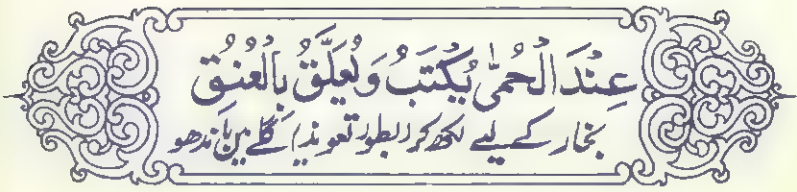 عِنْدَ الْحُمّٰى يُكْتَبُ وَ يُعَلَّقُ بِالْعُنُقِ
بخار کے لیے لکھ کر (بطور تعویذ) گلے میں باندھو